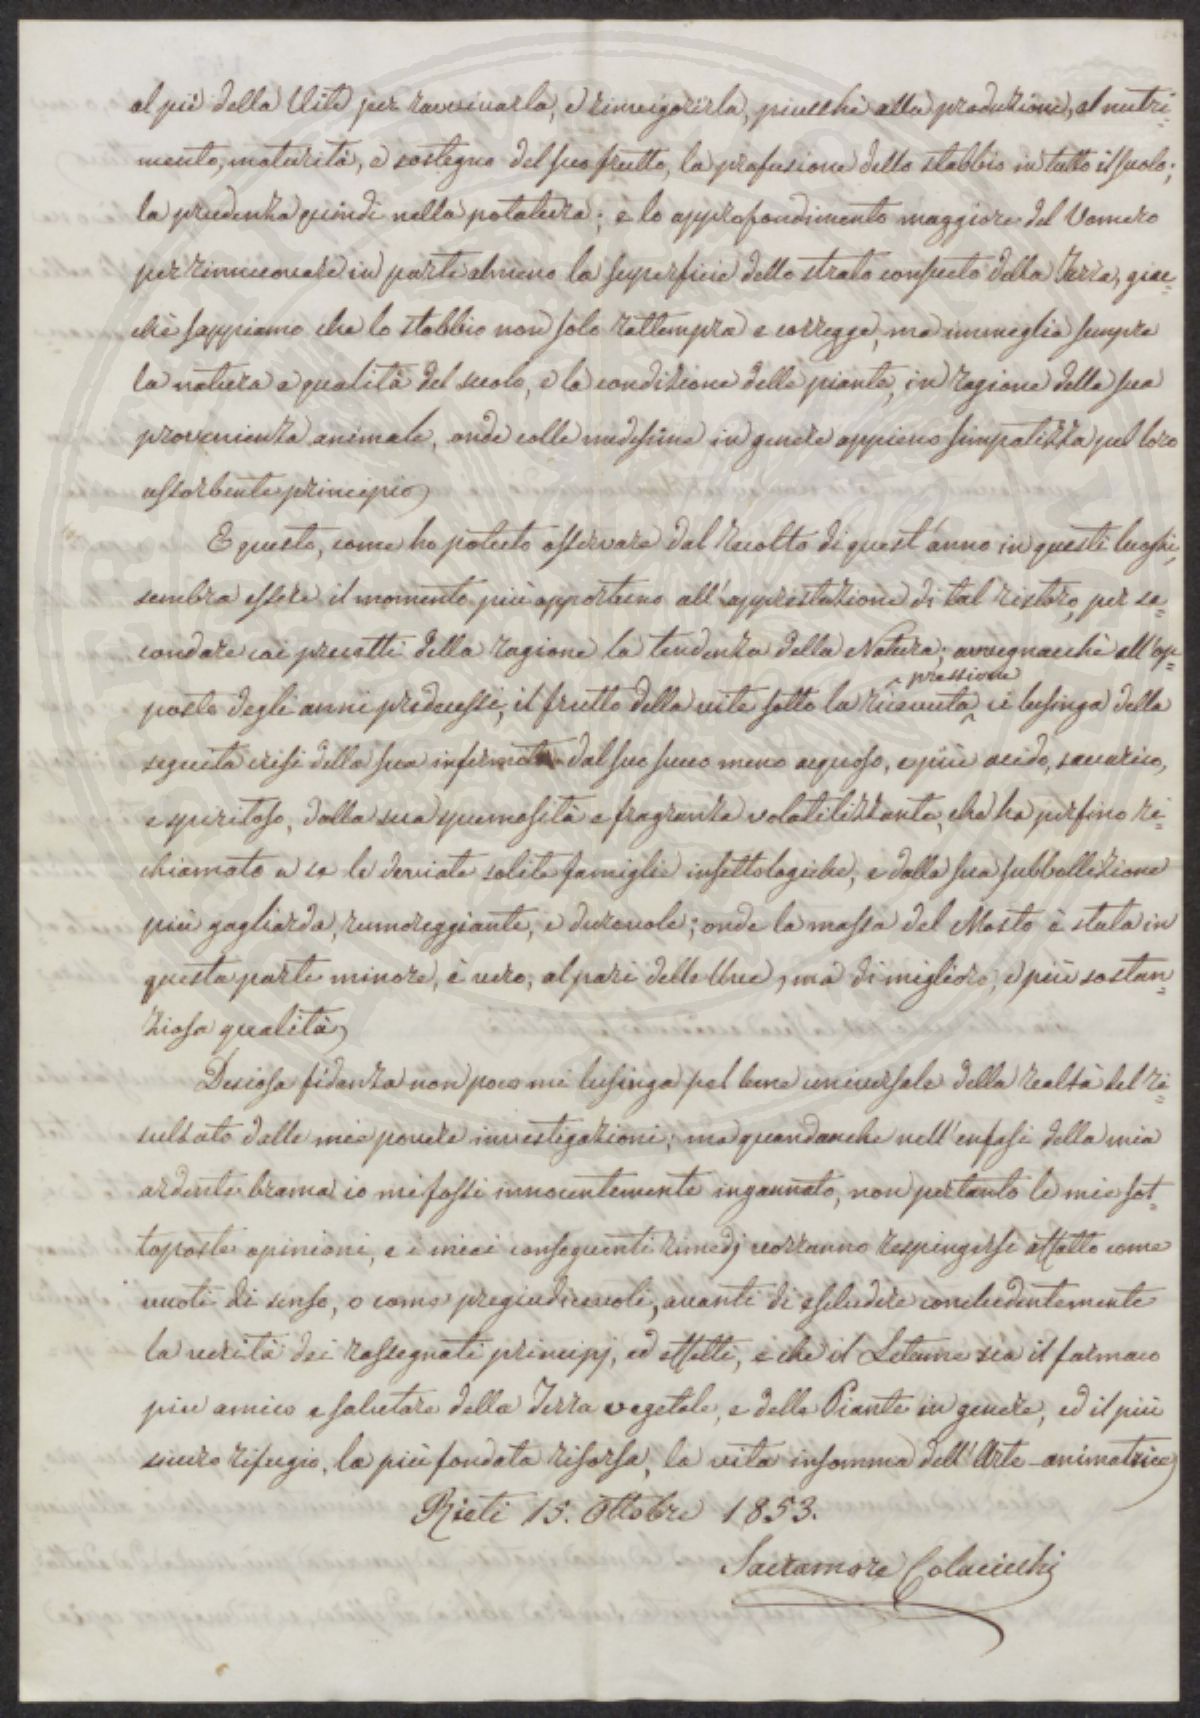 al piè della Vite per ravvivarla, e rinvigorirla, piucchè alla produzione, al nutri=
mento, maturità, e sostegno del suo frutto, la profusione dello stabbio in tutto il suolo;
la prudenza quindi nella potatura; e lo approfondimento maggiore del Vomero
per rinnuovare in parte almeno la superficie dello strato consueto della Terra, giac=
chè sappiamo che lo stabbio non solo rattempra e corregge, ma immeglia sempre
la natura e qualità del suolo, e la condizione delle piante, in ragione della sua
provenienza animale, onde colle medesime in genere appieno simpatizza pel loro
assorbente principio
E questo, come ho potuto osservare dal racolto di quest'anno in questi luoghi,
sembra essere il momento più opportuno all'apprestazione di tal ristoro, per se=
condare coi precetti della ragione la tendenza della Natura; avvegnacchè all'op=
posto degli anni predecessi, il frutto della vite sotto la ricevuta pressione ci lusinga della
seguita crisi della sua infermità dal suo succo meno acquoso, e più acido, saccarico,
e spiritoso, dalla sua spumosità e fragranza volatilizzante, che ha perfino ri=
chiamato a se le deviate solite famiglie insettologiche, e dalla sua subbollizione
più gagliarda, rumoreggiante, e durevole; onde la massa del Mosto è stata in
questa parte minore, è vero, al pari delle Uve, ma di migliore, e più sostan=
ziosa qualità
Desiosa fidanza non poco mi lusinga pel bene universale della realtà del ri=
sultato dalle mie povere investigazioni; ma quandanche nell'enfasi della mia
ardente brama io mi fossi innocentemente ingannato, non pertanto le mie sot=
toposte opinioni, e i miei conseguenti rimedj vorranno respingersi affatto come
vuoti di senso, o come pregiudicevoli, avanti di escludere concludentemente
la verità dei rassegnati principj, ed effetti, e che il Letame sia il farmaco
più amico e salutare della Terra vegetale, e delle Piante in genere, ed il più
sicuro rifugio, la più fondata risorsa, la vita insomma dell'Arte animatrice
Rieti 15. Ottobre 1853.
Sacramore Colacicchi